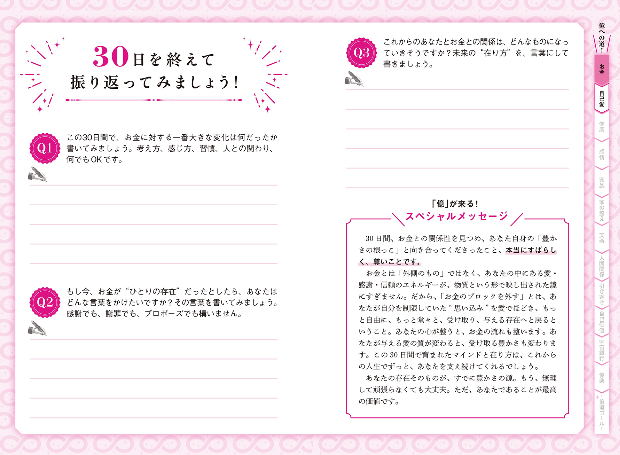 30日を終えて
振り返ってみましょう！
Q1
この30日間で、お金に対する一番大きな変化は何だったか
書いてみましょう。考え方、感じ方、習慣、人との関わり、
何でもOKです。
Q2
もし今、お金が“ひとりの存在”だったとしたら、あなたは
どんな言葉をかけたいですか？その言葉を書いてみましょう。
感謝でも、謝罪でも、プロポーズでも構いません。
Q3
これからのあなたとお金との関係は、どんなものになっ
ていきそうですか？未来の“在り方”を、言葉にして
書きましょう。
「億」が来る！
スペシャルメッセージ
30日間、お金との関係性を見つめ、あなた自身の「豊か
さの根っこ」と向き合ってくださったこと、本当にすばらし
く、尊いことです。
お金とは「外側のもの」ではなく、あなたの中にある愛・
感謝・信頼のエネルギーが、物質という形で映し出された鏡
にすぎません。だから、「お金のブロックを外す」とは、あ
なたが自分を制限していた“思い込み”を愛でほどき、もっ
と自由に、もっと堂々と、受け取り、与える存在へと戻ると
いうこと。あなたの心が整うと、お金の流れも整います。あ
なたが与える愛の質が変わると、受け取る豊かさも変わりま
す。この30日間で育まれたマインドと在り方は、これから
の人生でずっと、あなたを支え続けてくれるでしょう。
あなたの存在そのものが、すでに豊かさの源。もう、無理
して頑張らなくても大丈夫。ただ、あなたであることが最高
の価値です。
億への道！
お金
自己愛